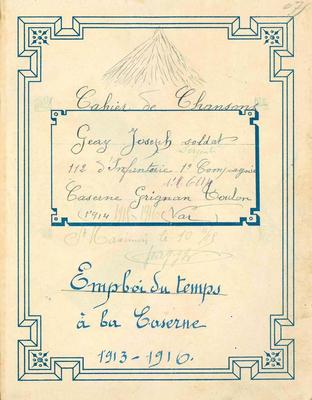 Cahier de Chansons
Geay Joseph soldat
Sergent
112 d'Infanterie 1e Compagnie
Caserne Grignan Toulon
(1914 1915-1916 Var)
St Maximin le 10
Emploi du temps
à la Caserne
1913-1916.